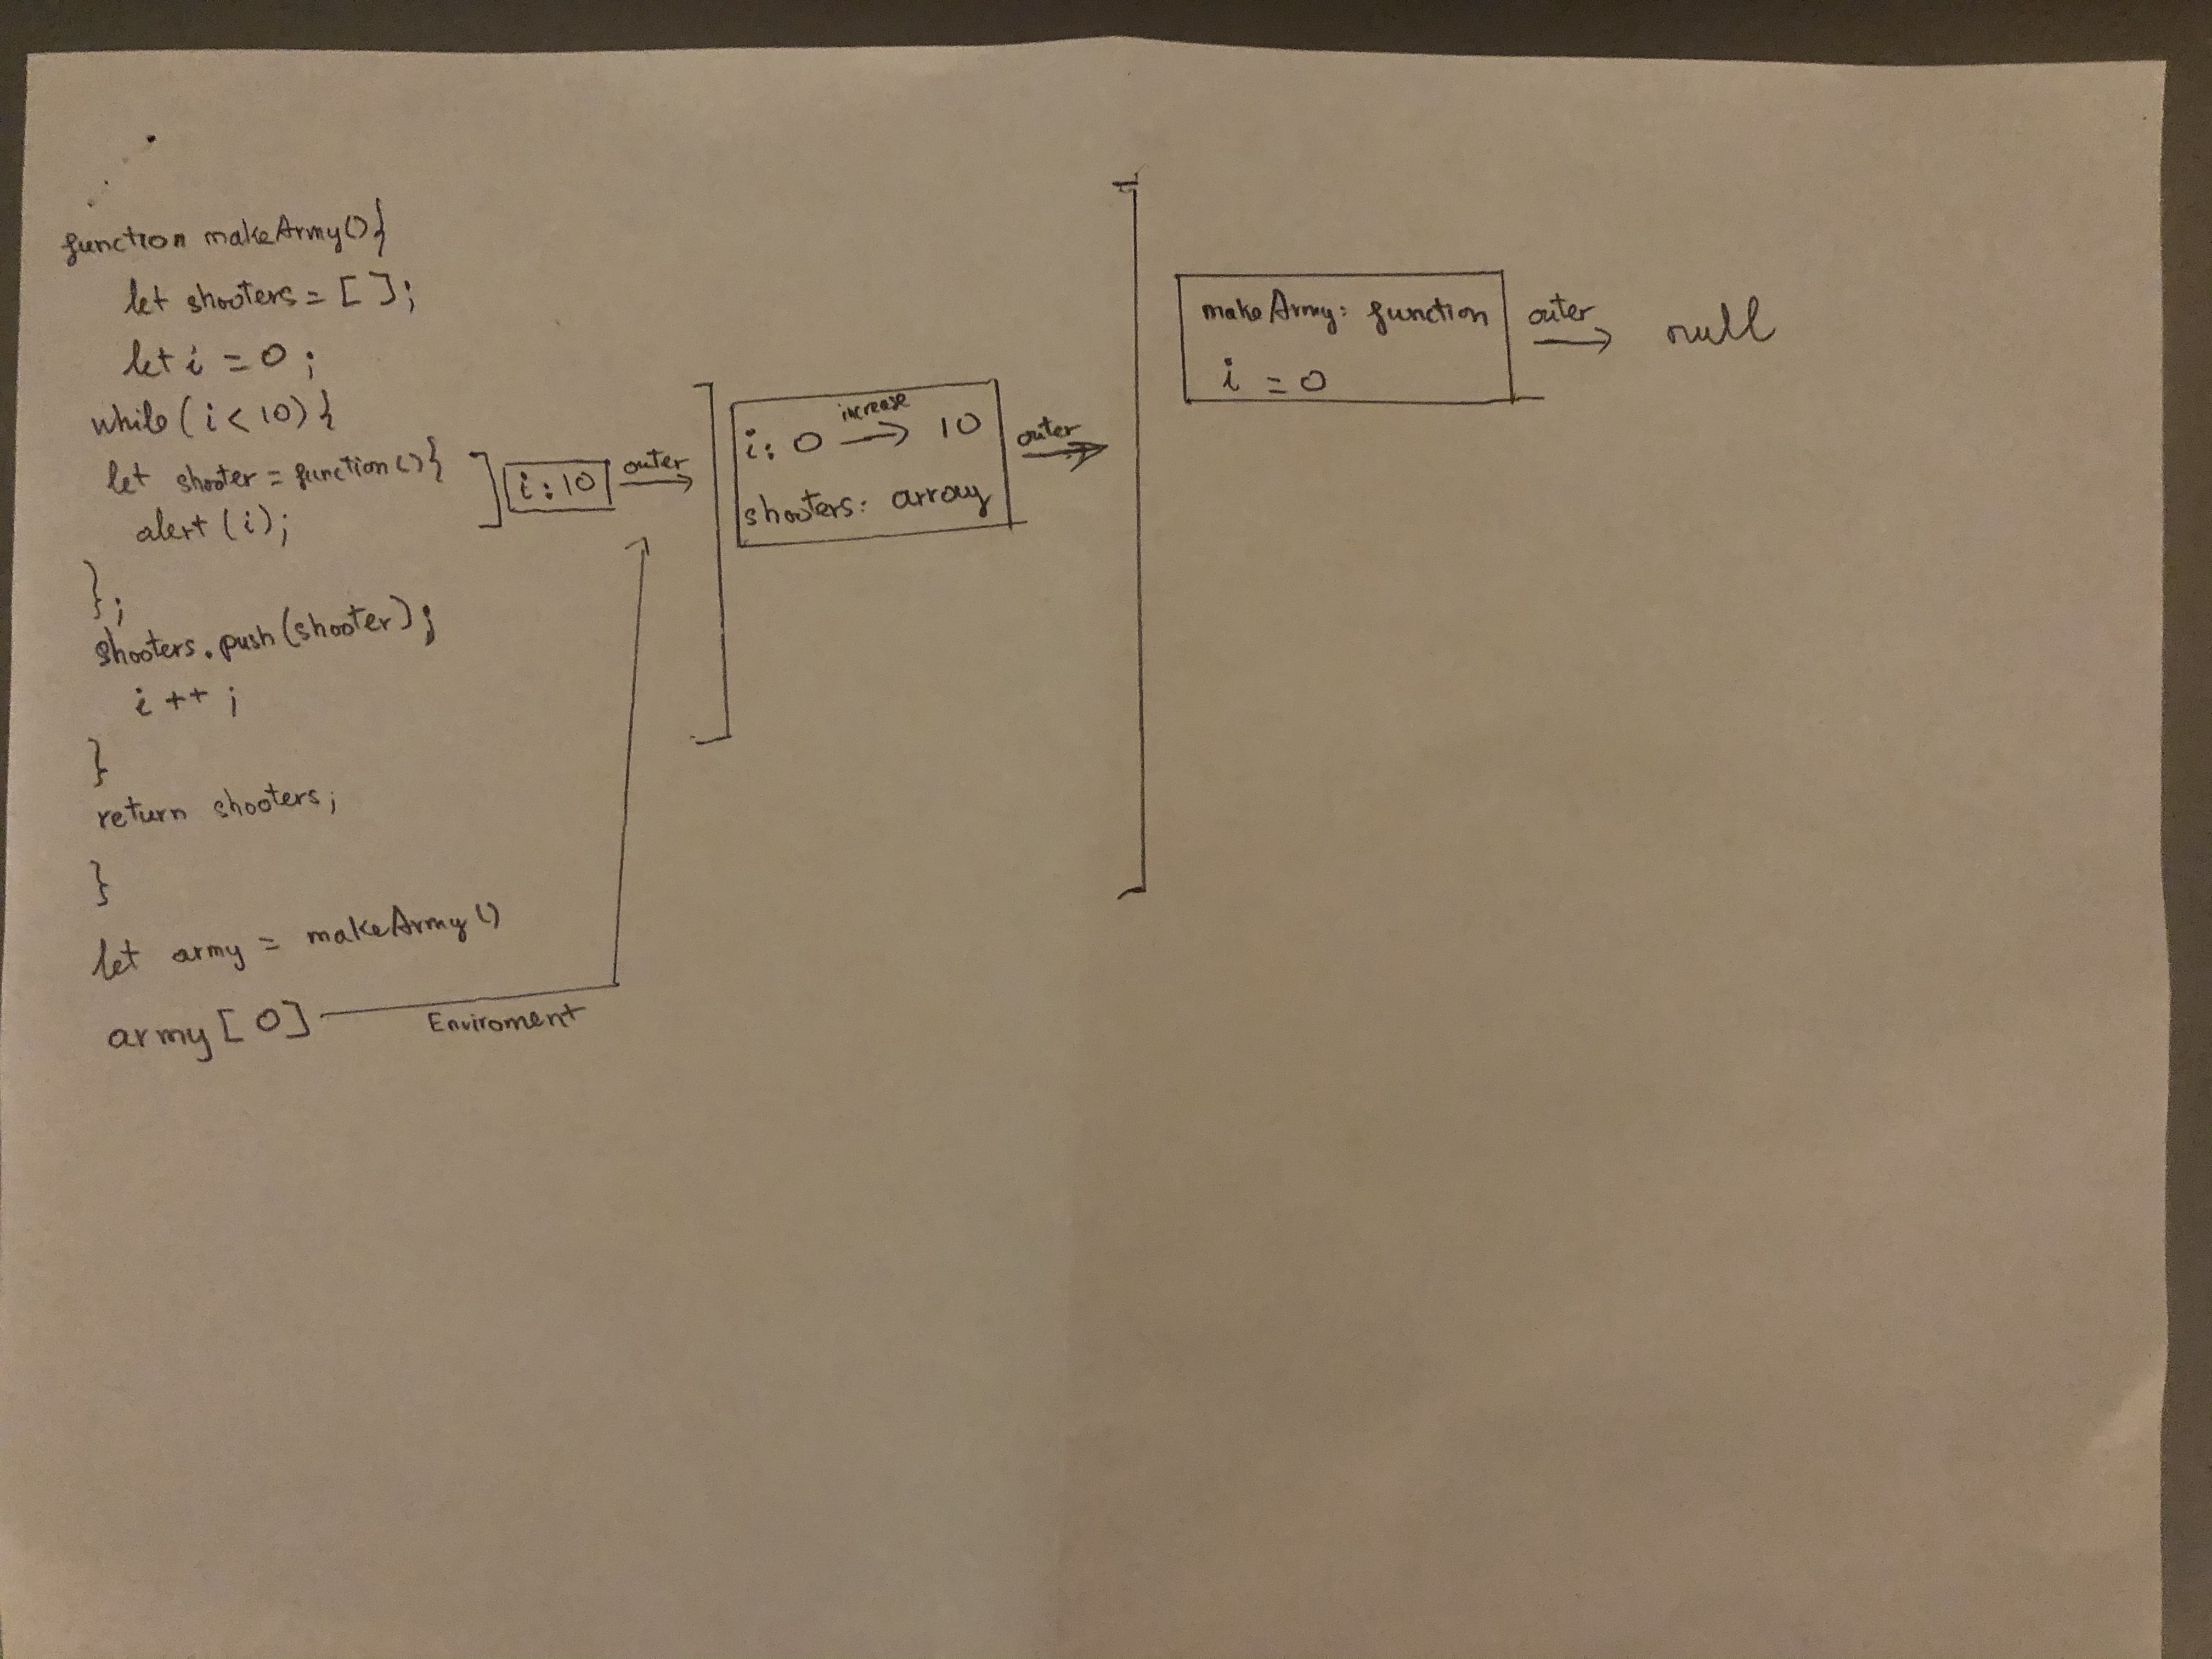 function makeArmy(){
let shooters = [ ];
let i = 0 ;
while ( i < 10 ) {
let shooter = function () {
alert ( i );
};
shooters . push (shooter);
i ++ ;
}
return shooters;
}
let army = makeArmy ()
army [ 0 ]
Enviroment
i : 10
outer
i : 0 increase → 10
shooters: array
outer
makeArmy: function
i = 0
outer
null